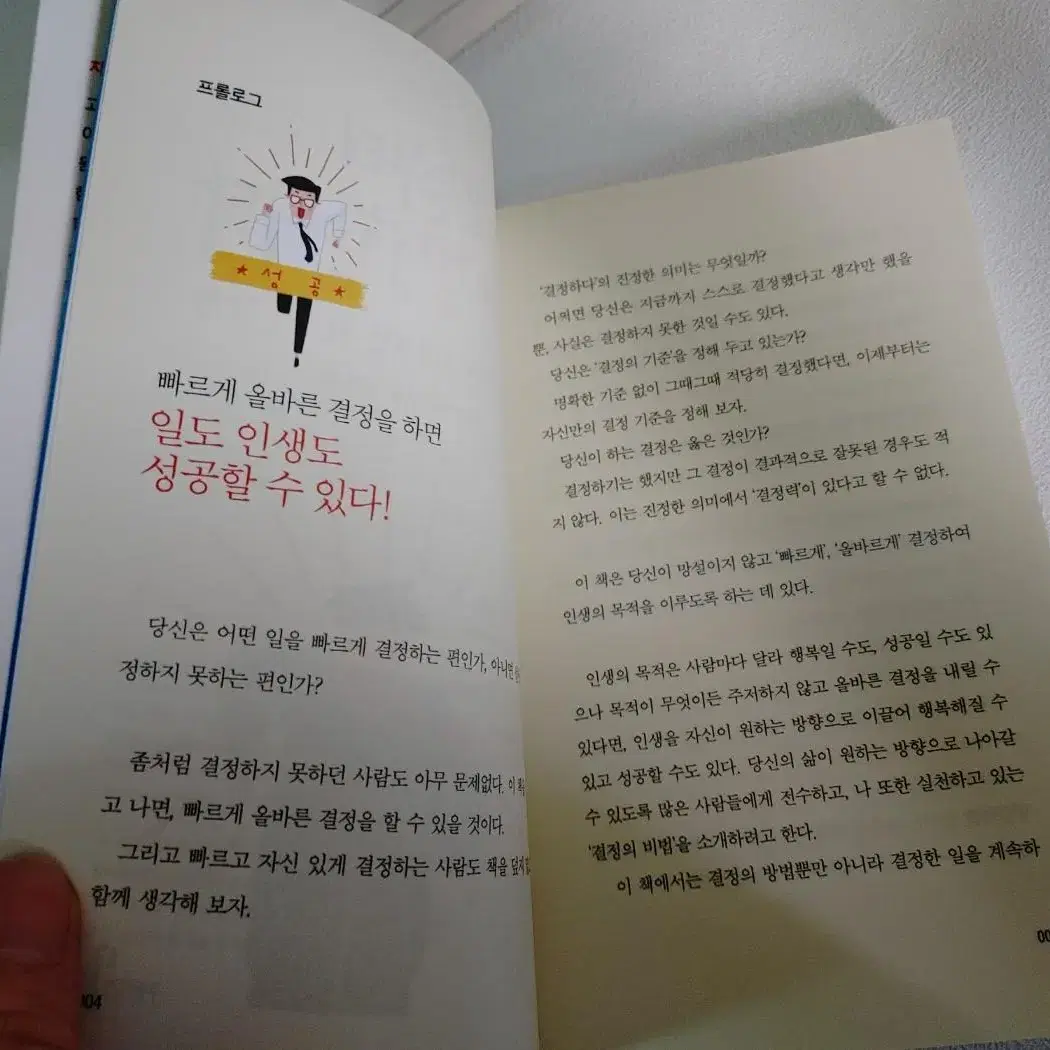 프롤로그
★ 성 공 ★
빠르게 올바른 결정을 하면
일도 인생도
성공할 수 있다!
당신은 어떤 일을 빠르게 결정하는 편인가, 아니면
정하지 못하는 편인가?
좀처럼 결정하지 못하던 사람도 아무 문제없다. 이
고 나면, 빠르게 올바른 결정을 할 수 있을 것이다.
그리고 빠르고 자신 있게 결정하는 사람도 책을
함께 생각해 보자.
004
'결정하다'의 진정한 의미는 무엇일까?
어쩌면 당신은 지금까지 스스로 결정했다고 생각만 했을
뿐, 사실은 결정하지 못한 것일 수도 있다.
당신은 '결정의 기준'을 정해 두고 있는가?
명확한 기준 없이 그때그때 적당히 결정했다면, 이제부터는
자신만의 결정 기준을 정해 보자.
당신이 하는 결정은 옳은 것인가?
결정하기는 했지만 그 결정이 결과적으로 잘못된 경우도 적
지 않다. 이는 진정한 의미에서 '결정력'이 있다고 할 수 없다.
이 책은 당신이 망설이지 않고 '빠르게', '올바르게' 결정하여
인생의 목적을 이루도록 하는 데 있다.
인생의 목적은 사람마다 달라 행복일 수도, 성공일 수도 있
으나 목적이 무엇이든 주저하지 않고 올바른 결정을 내릴 수
있다면, 인생을 자신이 원하는 방향으로 이끌어 행복해질 수
있고 성공할 수도 있다. 당신의 삶이 원하는 방향으로 나아갈
수 있도록 많은 사람들에게 전수하고, 나 또한 실천하고 있는
'결정의 비법'을 소개하려고 한다.
이 책에서는 결정의 방법뿐만 아니라 결정한 일을 계속하